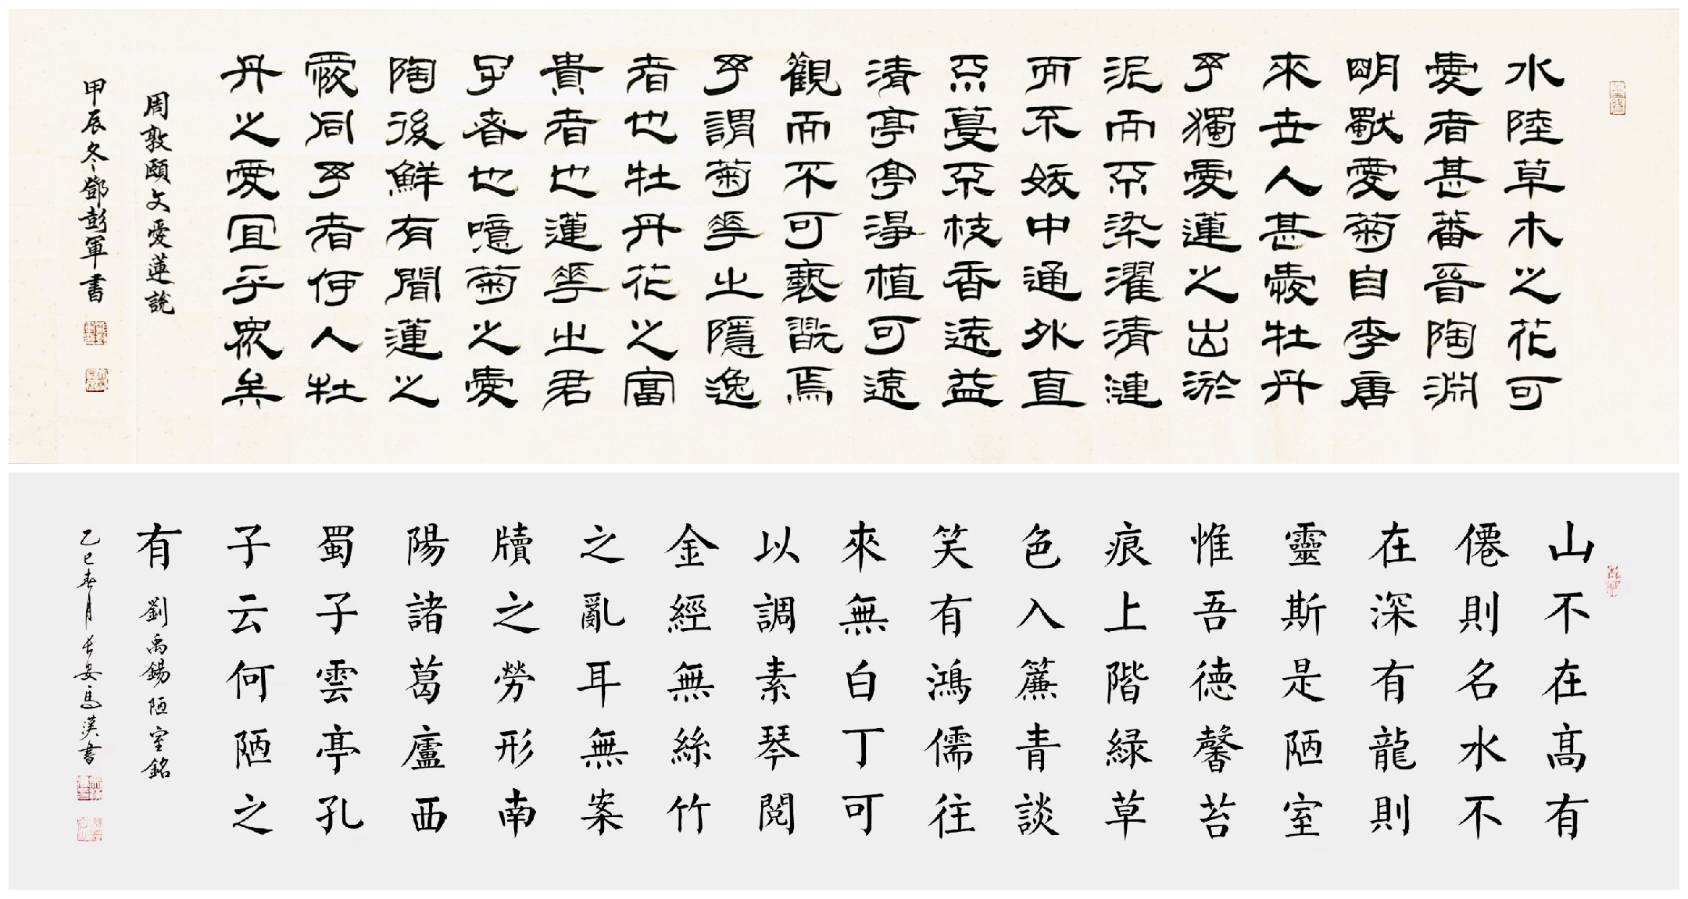 水陸草木之花可
愛者甚蕃晉陶淵
明獨愛菊自李唐
來世人甚愛牡丹
予獨愛蓮之出淤
泥而不染濯清漣
而不妖中通外直
不蔓不枝香遠益
清亭亭淨植可遠
觀而不可褻翫焉
予謂菊華之隱逸
者也牡丹花之富
貴者也蓮華之君
子者也噫菊之愛
陶後鮮有聞蓮之
愛同予者何人牡
丹之愛宜乎衆矣
周敦頤文愛蓮說
甲辰冬鄧彭軍書
山不在高有
僊則名水不
在深有龍則
靈斯是陋室
惟吾德馨苔
痕上階緑草
色入簾青談
笑有鴻儒往
來無白丁可
以調素琴閱
金經無絲竹
之亂耳無案
牘之勞形南
陽諸葛廬西
蜀子雲亭孔
子云何陋之
有 劉禹錫陋室銘
乙巳春月長安馬漢書